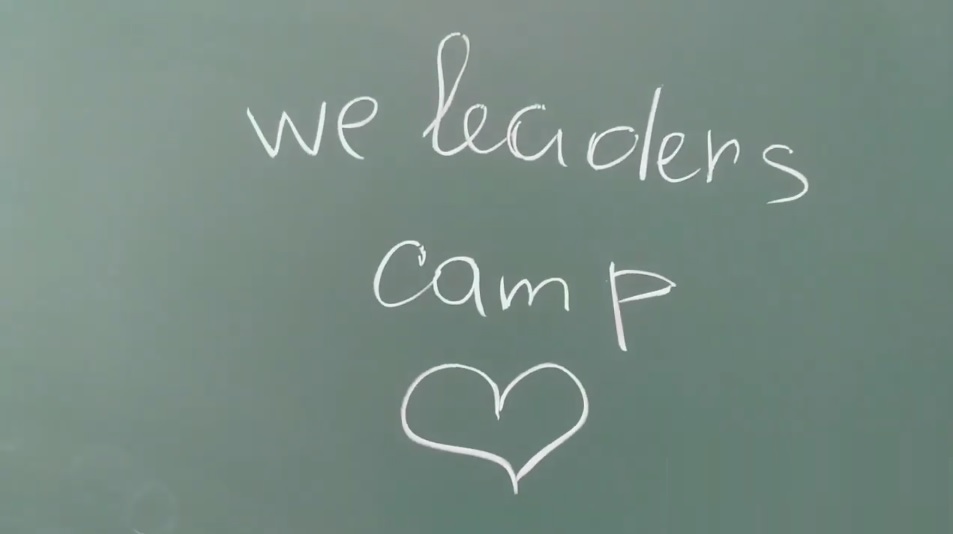 we leaders
camp